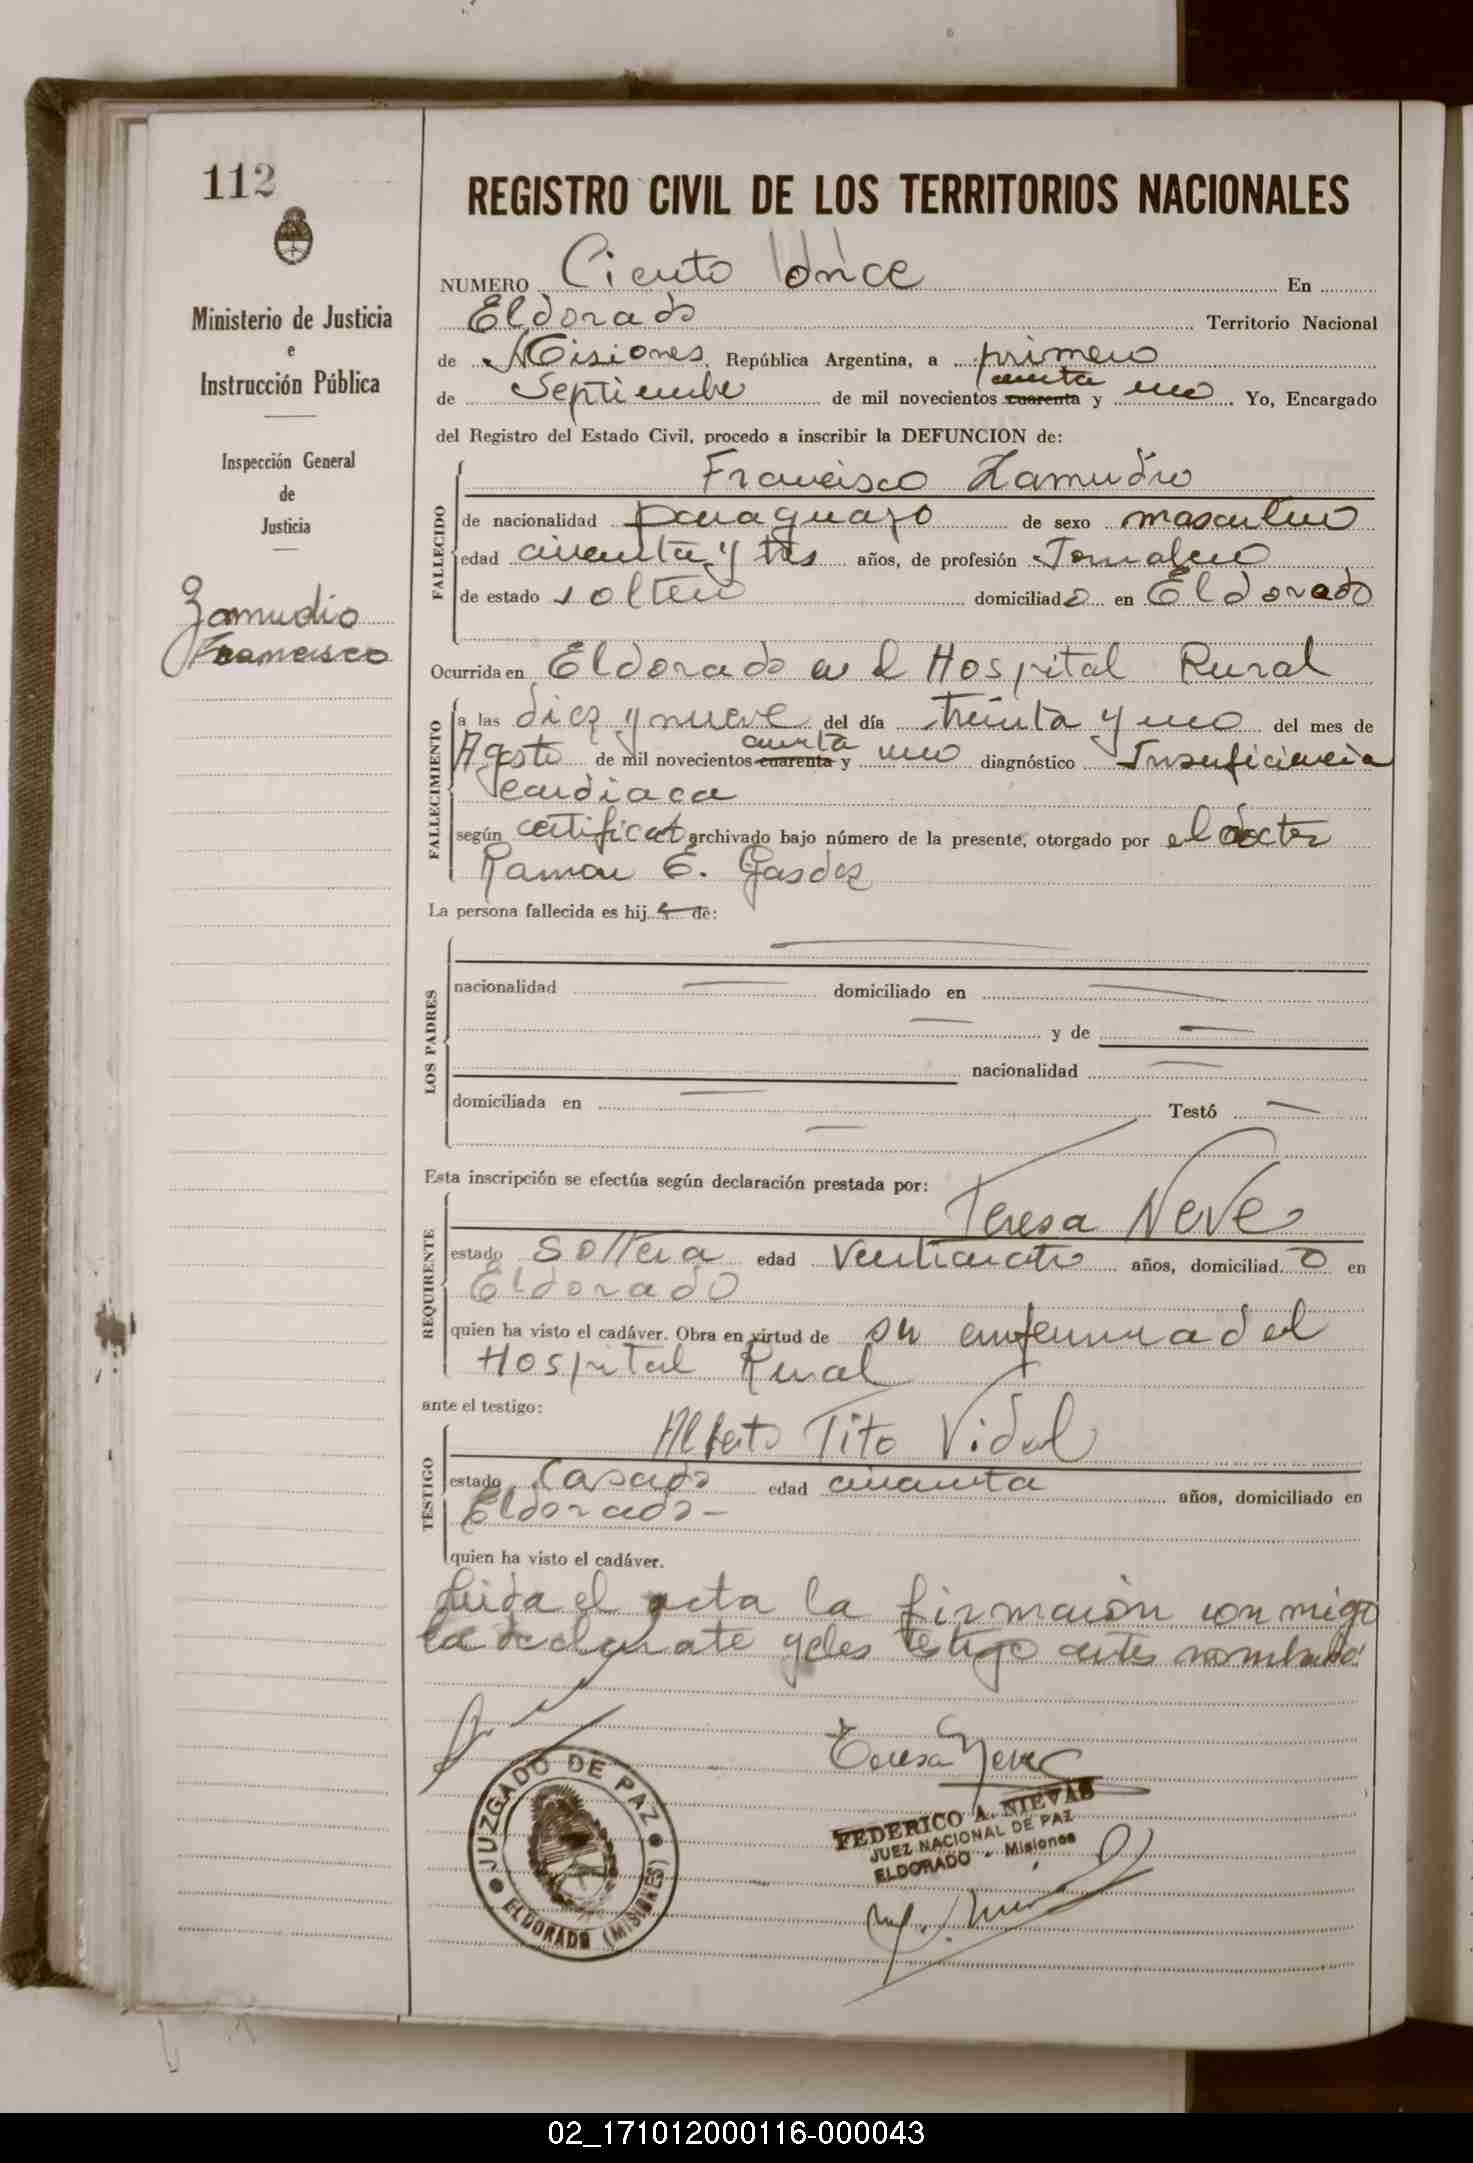 112
REGISTRO CIVIL DE LOS TERRITORIOS NACIONALES
Ministerio de Justicia
e
Instrucción Pública
Inspección General
de
Justicia
Zamudio
Francisco
NUMERO Ciento doce En
Eldorado Territorio Nacional
de Misiones, República Argentina, a primero
de Septiembre de mil novecientos cuarenta y uno Yo, Encargado
del Registro del Estado Civil, procedo a inscribir la DEFUNCION de:
FALLECIDO
Francisco Zamudio
de nacionalidad paraguayo de sexo masculino
edad cincuenta y tres años, de profesión Jornalero
de estado soltero domiciliado en Eldorado
Ocurrida en Eldorado en el Hospital Rural
FALLECIMIENTO
a las diez y nueve del día treinta y uno del mes de
Agosto de mil novecientos cuarenta y uno diagnóstico Insuficiencia
cardiaca
según certificat archivado bajo número de la presente, otorgado por el doctor
Ramon E.
La persona fallecida es hij de:
LOS PADRES
nacionalidad domiciliado en
y de
nacionalidad
domiciliada en Testó
Esta inscripción se efectúa según declaración prestada por:
REQUIRENTE
Teresa Neve
estado Soltera edad Venticuatro años, domiciliado en
Eldorado
quien ha visto el cadáver. Obra en virtud de su enfermera del
Hospital Rural
ante el testigo:
TESTIGO
Alberto Tito Vidal
estado Casado edad cincuenta años, domiciliado en
Eldorado-
quien ha visto el cadáver.
Leida el acta la firmaron conmigo
la declarate y testigo antes nombrado
Teresa Neve
JUZGADO DE PAZ
ELDORADO (MISIONES)
FEDERICO A. NIEVAS
JUEZ NACIONAL DE PAZ
ELDORADO - Misiones
02_171012000116-000043